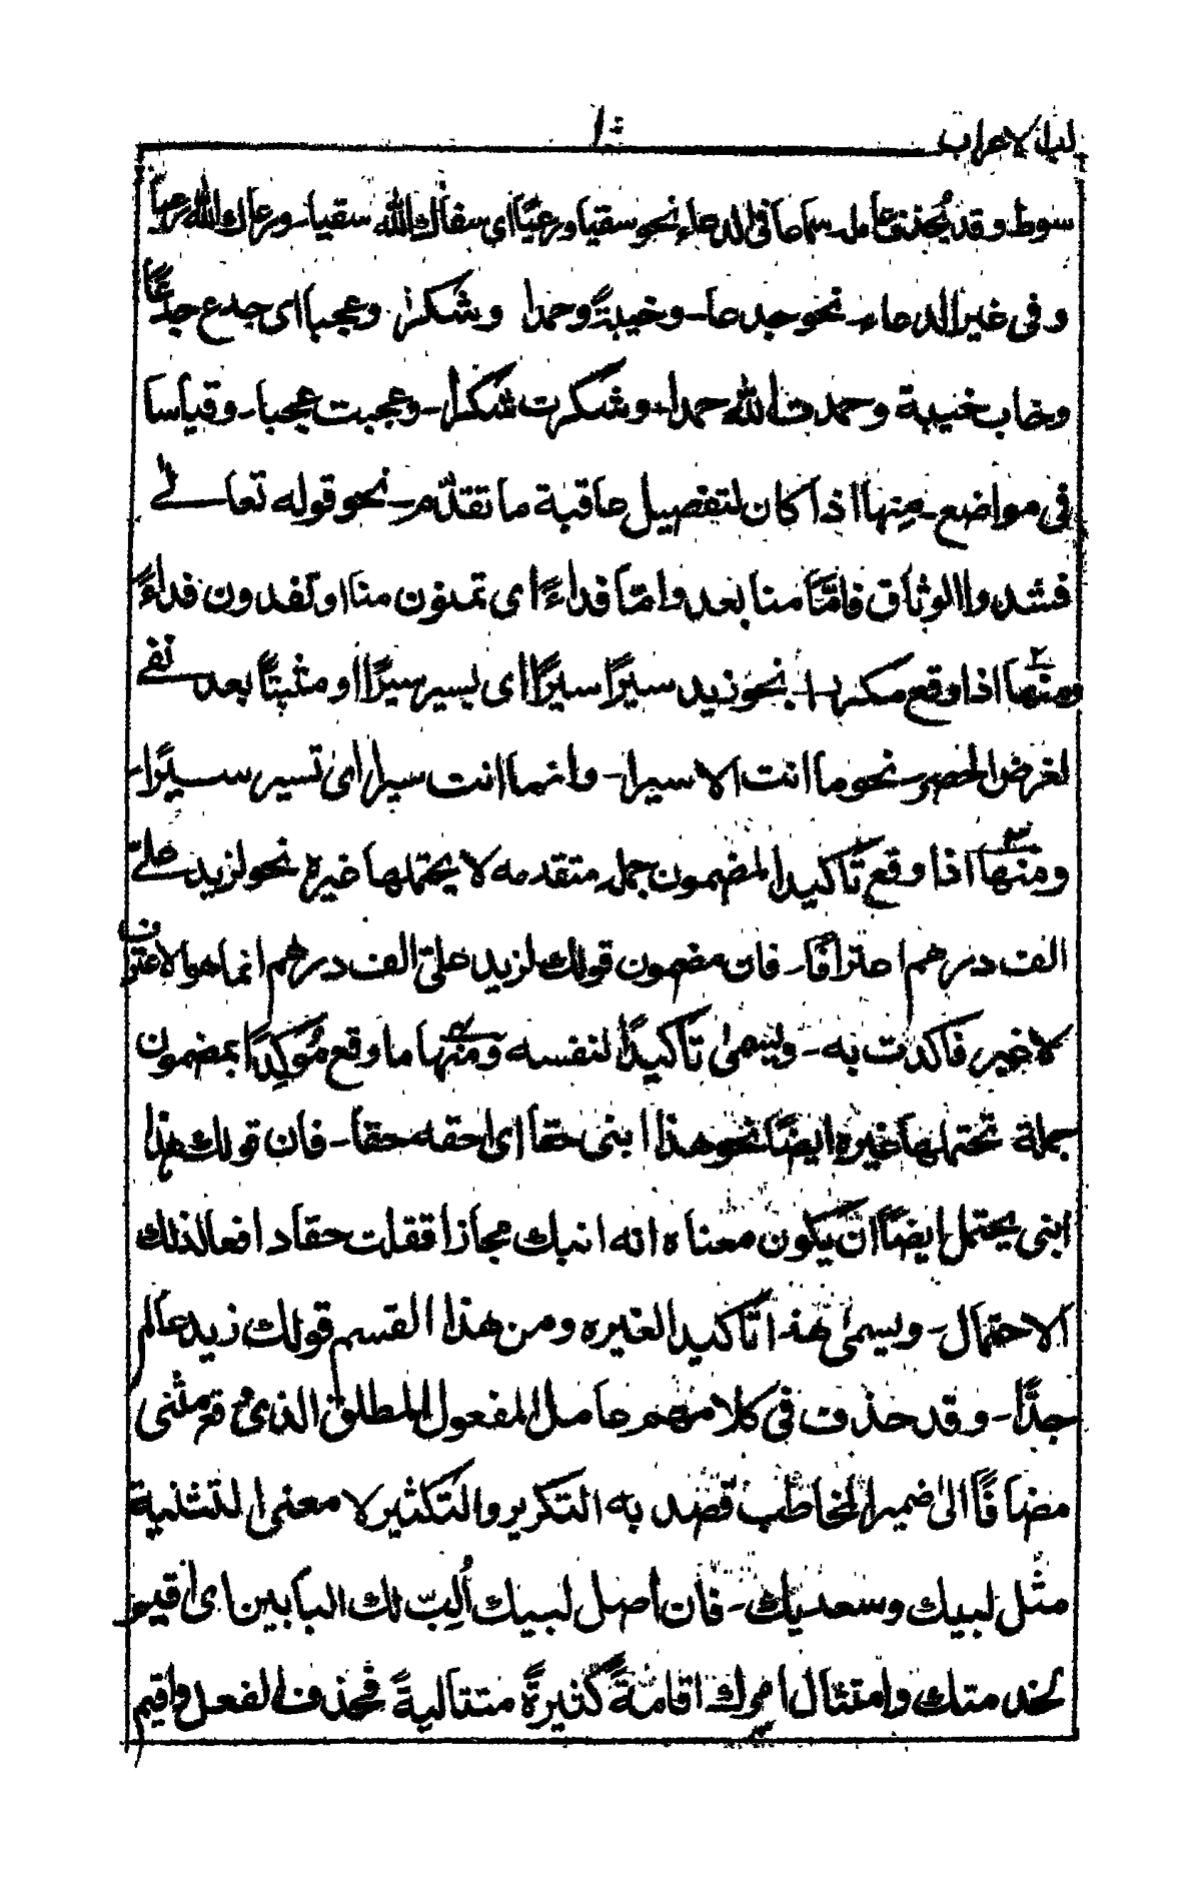 لب الاعراب
١٠
سوط وقد يُحذف عامل سماعا فى الدعاء نحو سقيا ورعيًا اى سقاك الله سقيا ورعاك الله رعيا
وفى غير الدعاء نحو جدعا وخيبةً وحمدا وشكرا وعجبا اى جدع جدعًا
وخاب خيبة وحمدت الله حمدا وشكرت شكرا وعجبت عجبا وقياسا
فى مواضع منها اذا كان لتفصيل عاقبة ما تقدّم نحو قوله تعالى
فشدوا الوثاق فامّا منا بعد وامّا فداءً اى تمنون منا او تفدون فداءً
ومنها ٢ اذا وقع مكررا نحو زيد سيرًا سيرًا اى يسير سيرًا او مثبتًا بعد نفى
لغرض الحصر نحو ما انت الا سيرا وانما انت سيرا اى تسير سيرًا
ومنها ٣ اذا وقع تاكيدا لمضمون جملة متقدمه لا يحتملها غيره نحو لزيد علىّ
الف درهم اعترافًا فان مضمون قولك لزيد علىّ الف درهم انما هو الاعتراف
لا غير فاكدت به ويسمى تاكيدًا لنفسه ومنها ٤ ما وقع مُوكِدًا بمضمون
جملة تحتملها غيره ايضًا نحو هذا ابنى حقا اى احقه حقا فان قولك هذا
ابنى يحتمل ايضًا ان يكون معناه انه ابنك مجازا فقلت حقا دافعا لذلك
الاحتمال ويسمى هذا تاكيدا لغيره ومن هذا القسم قولك زيد عالم
جدًّا وقد حذف فى كلامهم عامل المفعول المطلق الذى وقع مثنى
مضافًا الى ضمير المخاطب قصد به التكرير والتكثير لا معنى التثنية
مثل لبيك وسعديك فان اصل لبيك أُلِبّ لك البابين اى اقيم
لخدمتك وامتثال امرك اقامةً كثيرةً متتاليةً فحذف الفعل واقيم